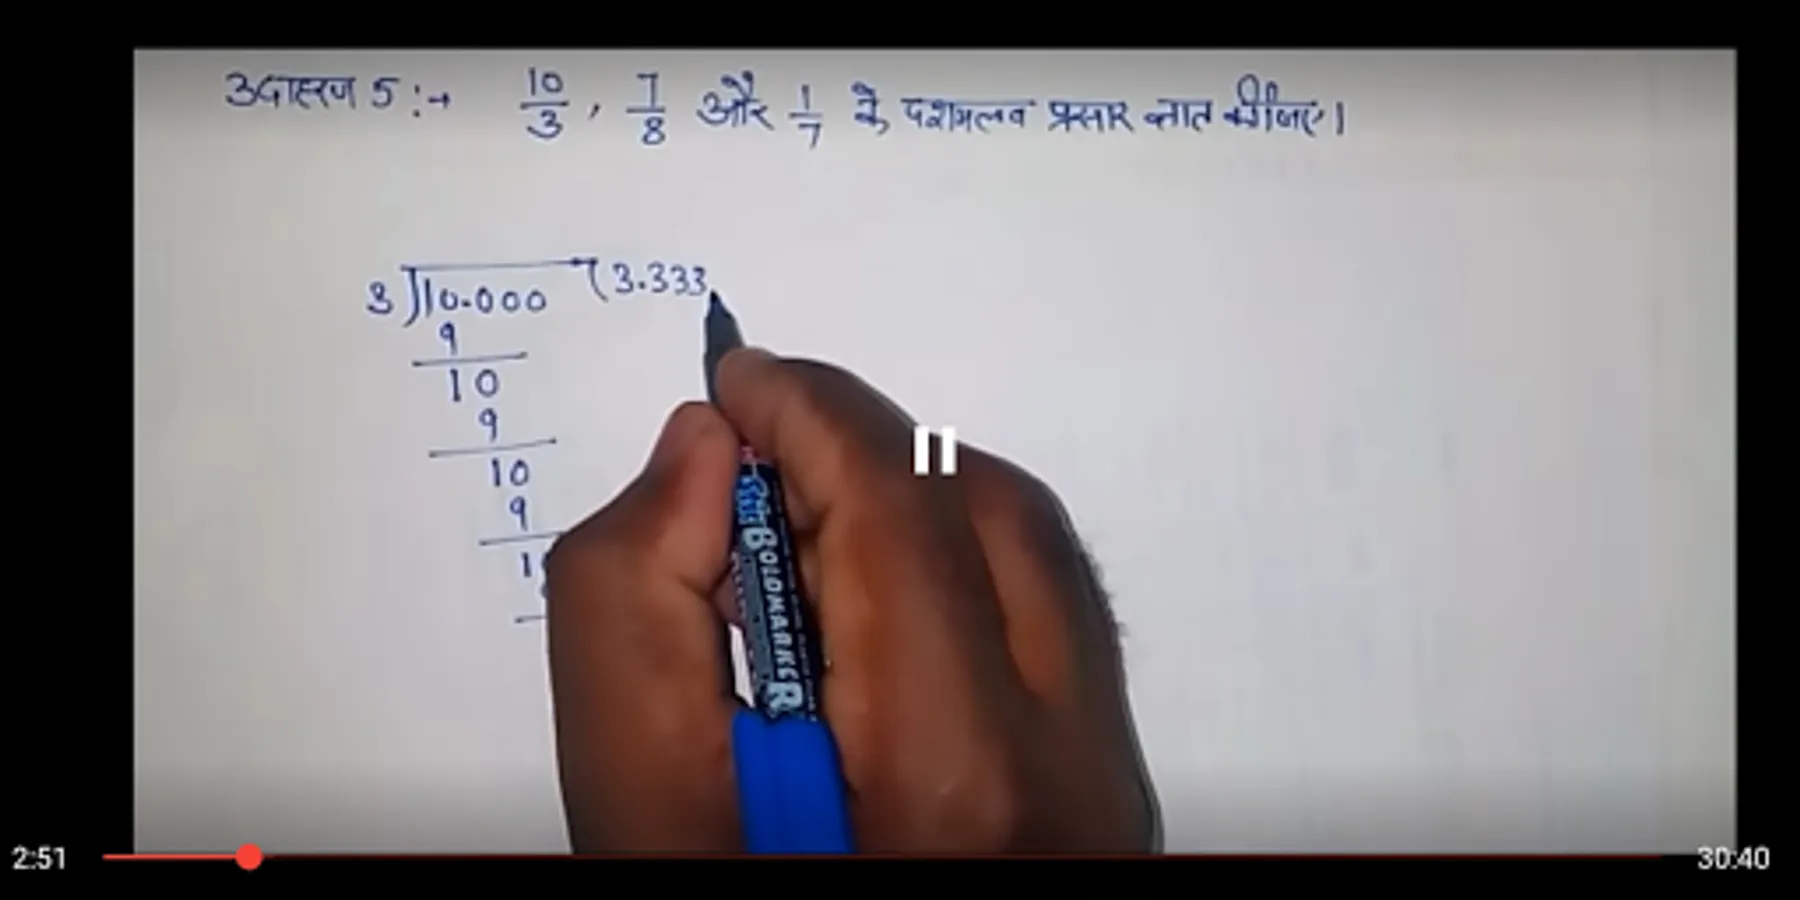 उदाहरण 5 :→ 10/3 , 7/8 और 1/7 के दशमलव प्रसार ज्ञात कीजिए।
3 ) 10.000 ( 3.333
9
10
9
10
9
10
BOLDMARKER
2:51
30:40